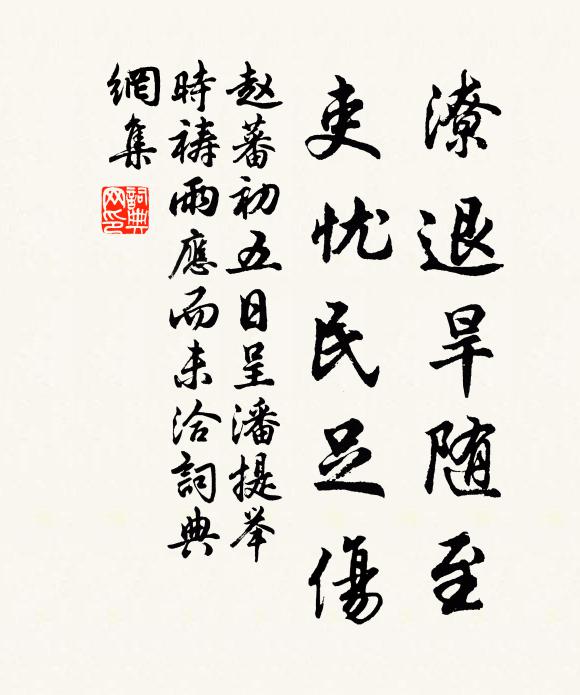 潦退旱随至
吏忧民足傷
赵蕃初五日呈潘提举
時祷雨應而未洽詞典
網集
詞典
网印